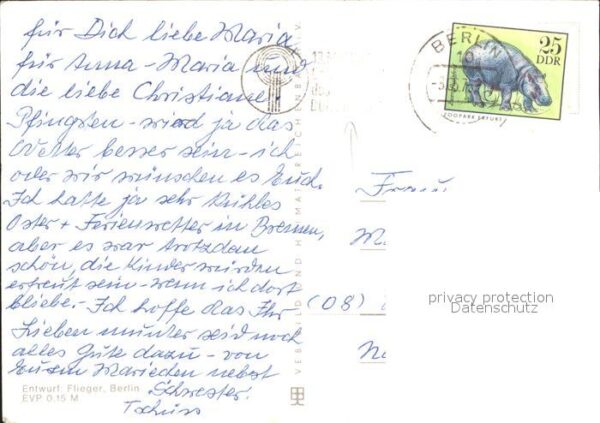 für Dich liebe Maria
für Anna-Maria und
die liebe Christiane!
Pfingsten - wird ja das
Wetter besser sein - ich
oder wir wünschen es Euch.
Ich hatte ja sehr kühles
Oster + Ferienwetter in Bremen,
aber es war trotzdem
schön, die Kinder würden
erfreut sein - wenn ich dort
bliebe. - Ich hoffe das Ihr
Lieben munter seid noch
alles Gute dazu - von
Euren Mariechen nebst
Schwester.
Tschüss
Entwurf: Flieger, Berlin
EVP 0,15 M
VEB BILD UND HEIMAT REICHENBACH
BERLIN
10
25
DDR
ZOOPARK ERFURT
Frau
(08)
privacy protection
Datenschutz